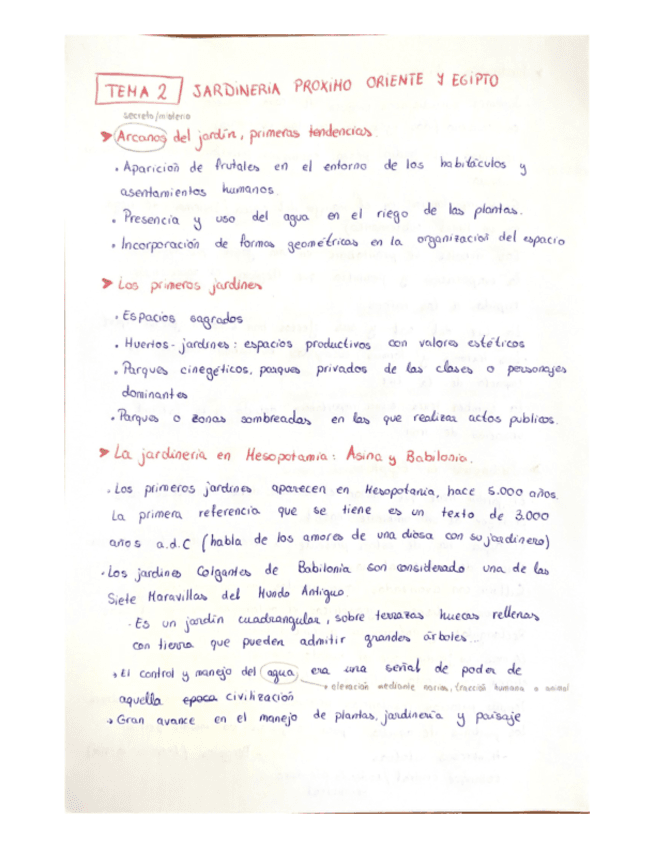 TEMA 2 JARDINERIA PROXIMO ORIENTE Y EGIPTO
secreto/misterio
➤ Arcanos del jardín, primeras tendencias.
• Aparición de frutales en el entorno de los habitáculos y
asentamientos humanos.
• Presencia y uso del agua en el riego de las plantas.
• Incorporación de formas geométricas en la organización del espacio
➤ Los primeros jardines
• Espacios sagrados
• Huertos-jardines: espacios productivos con valores estéticos
• Parques cinegéticos, parques privados de las clases o personajes
dominantes
• Parques o zonas sombreadas en las que realizar actos publicos.
➤ La jardineria en Mesopotamia: Asiria y Babilonia.
• Los primeros jardines aparecen en Mesopotania, hace 5.000 años.
La primera referencia que se tiene es un texto de 3.000
años a.d.C (habla de los amores de una diosa con su jardinero)
• Los jardines Colgantes de Babilonia son considerado una de las
Siete Maravillas del Mundo Antiguo.
· Es un jardín cuadrangular, sobre terrazas huecas rellenas
con tierra que pueden admitir grandes árboles...
• El control y manejo del agua era una señal de poder de
→ elevación mediante norias, tracción humana o animal
aquella epoca civilización
→ Gran avance en el manejo de plantas, jardinería y paisaje